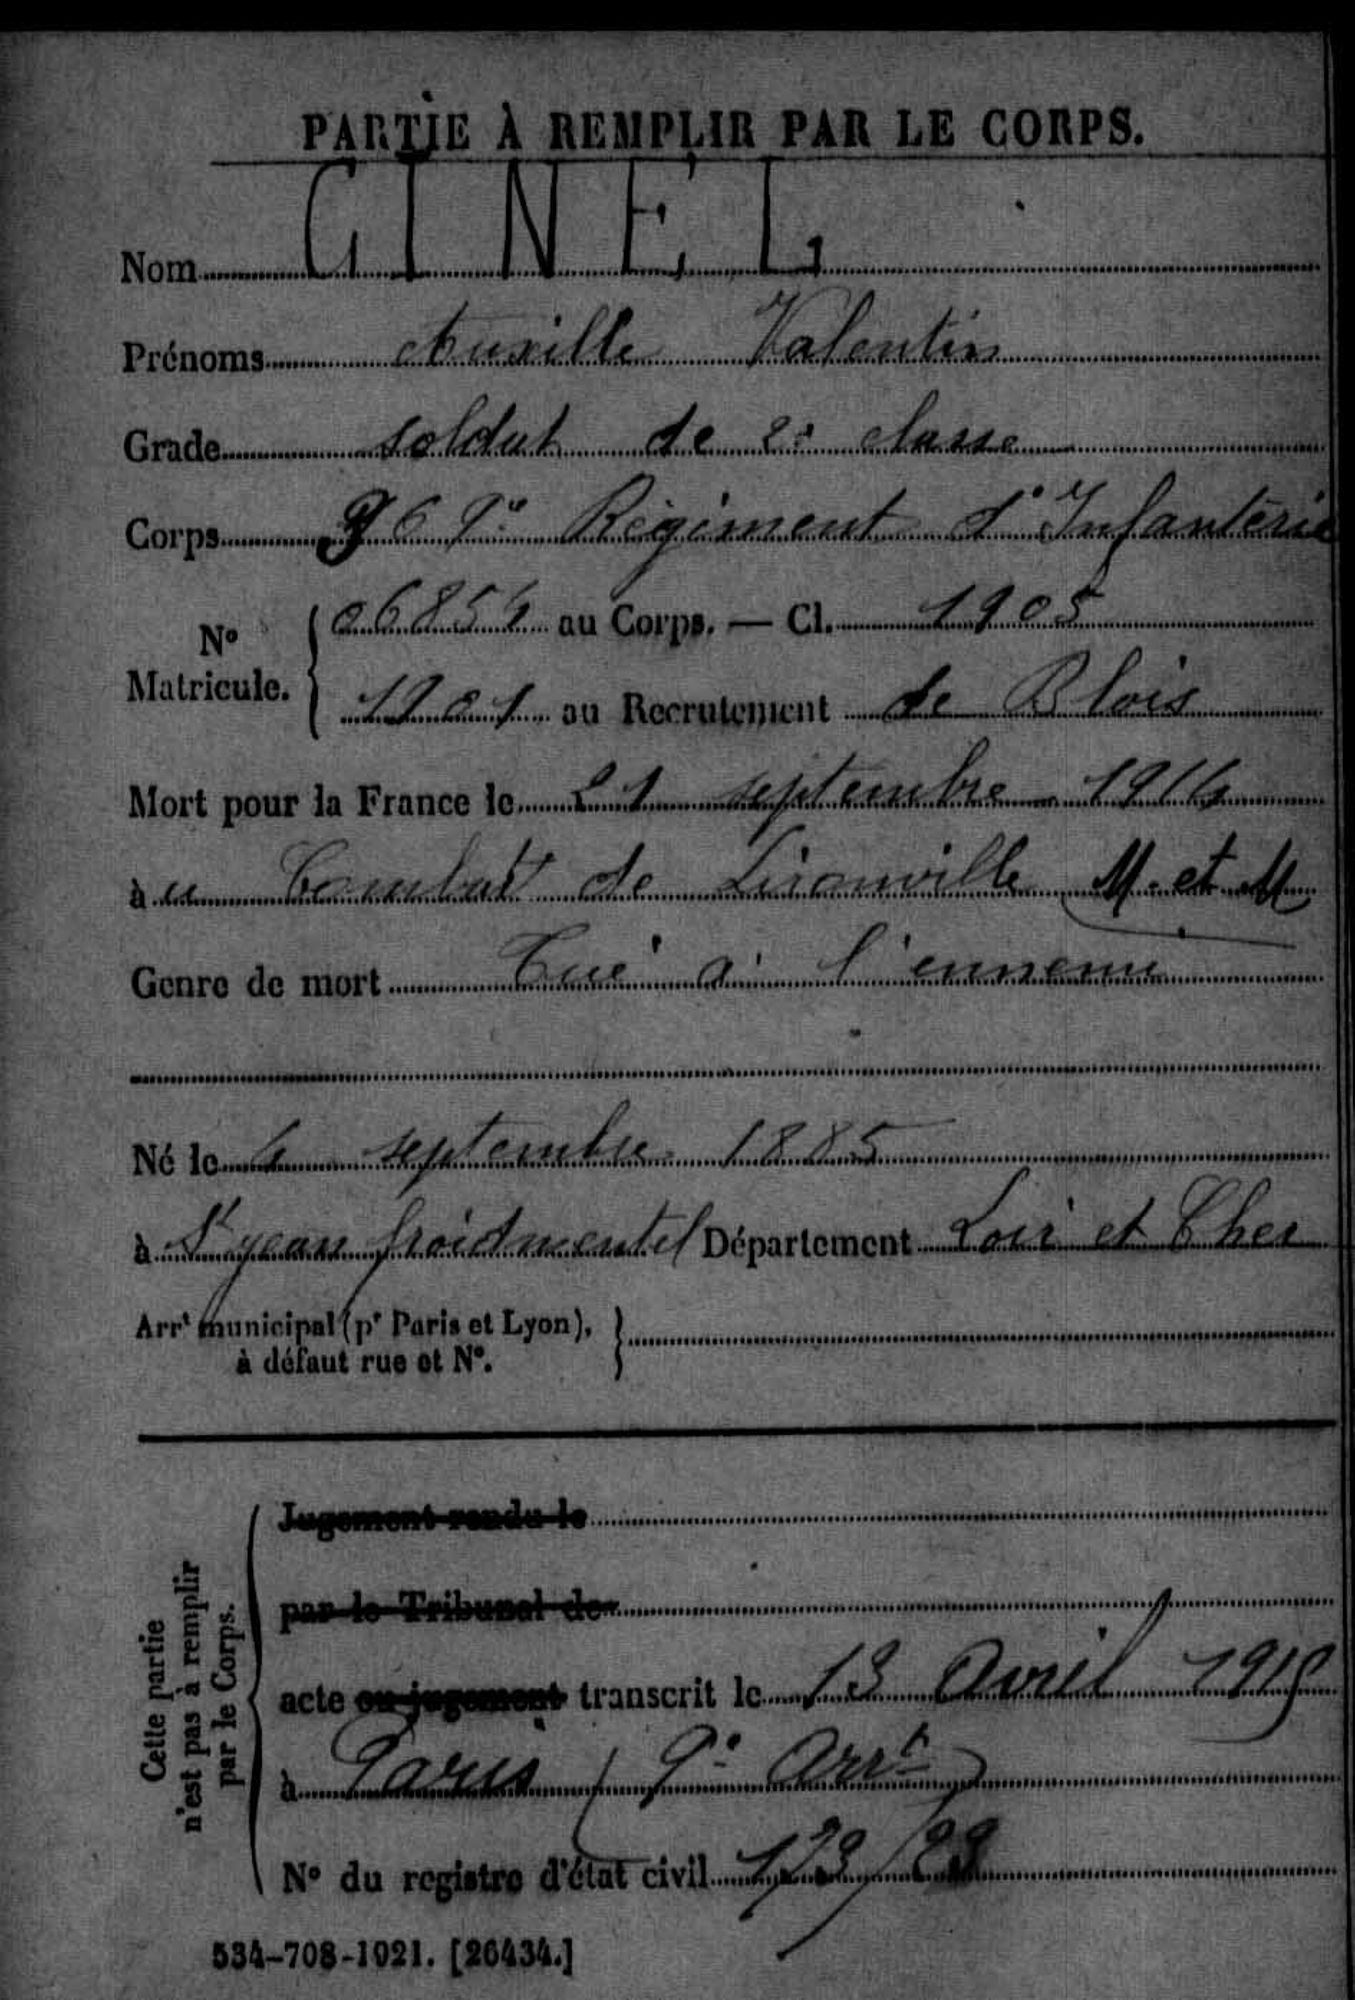 PARTIE À REMPLIR PAR LE CORPS.
Nom GINEL
Prénoms Auxille Valentin
Grade soldat de 2e classe
Corps 369e Régiment d'Infanterie
N° Matricule. { 06854 au Corps. — Cl. 1905
1901 au Recrutement de Blois
Mort pour la France le 21 septembre 1914
à u Combat de Lironville M. et M
Genre de mort Tué à l'ennemi
Né le 4 septembre 1885
à St jean froidmentel Département Loir et Cher
Arrt municipal (pr Paris et Lyon),
à défaut rue et N°.
Cette partie
n'est pas à remplir
par le Corps.
Jugement rendu le
par le Tribunal de
acte ou jugement transcrit le 13 Avril 1915
à Paris (9e Arrt)
N° du registre d'état civil 123/
534-708-1921. [26434.]